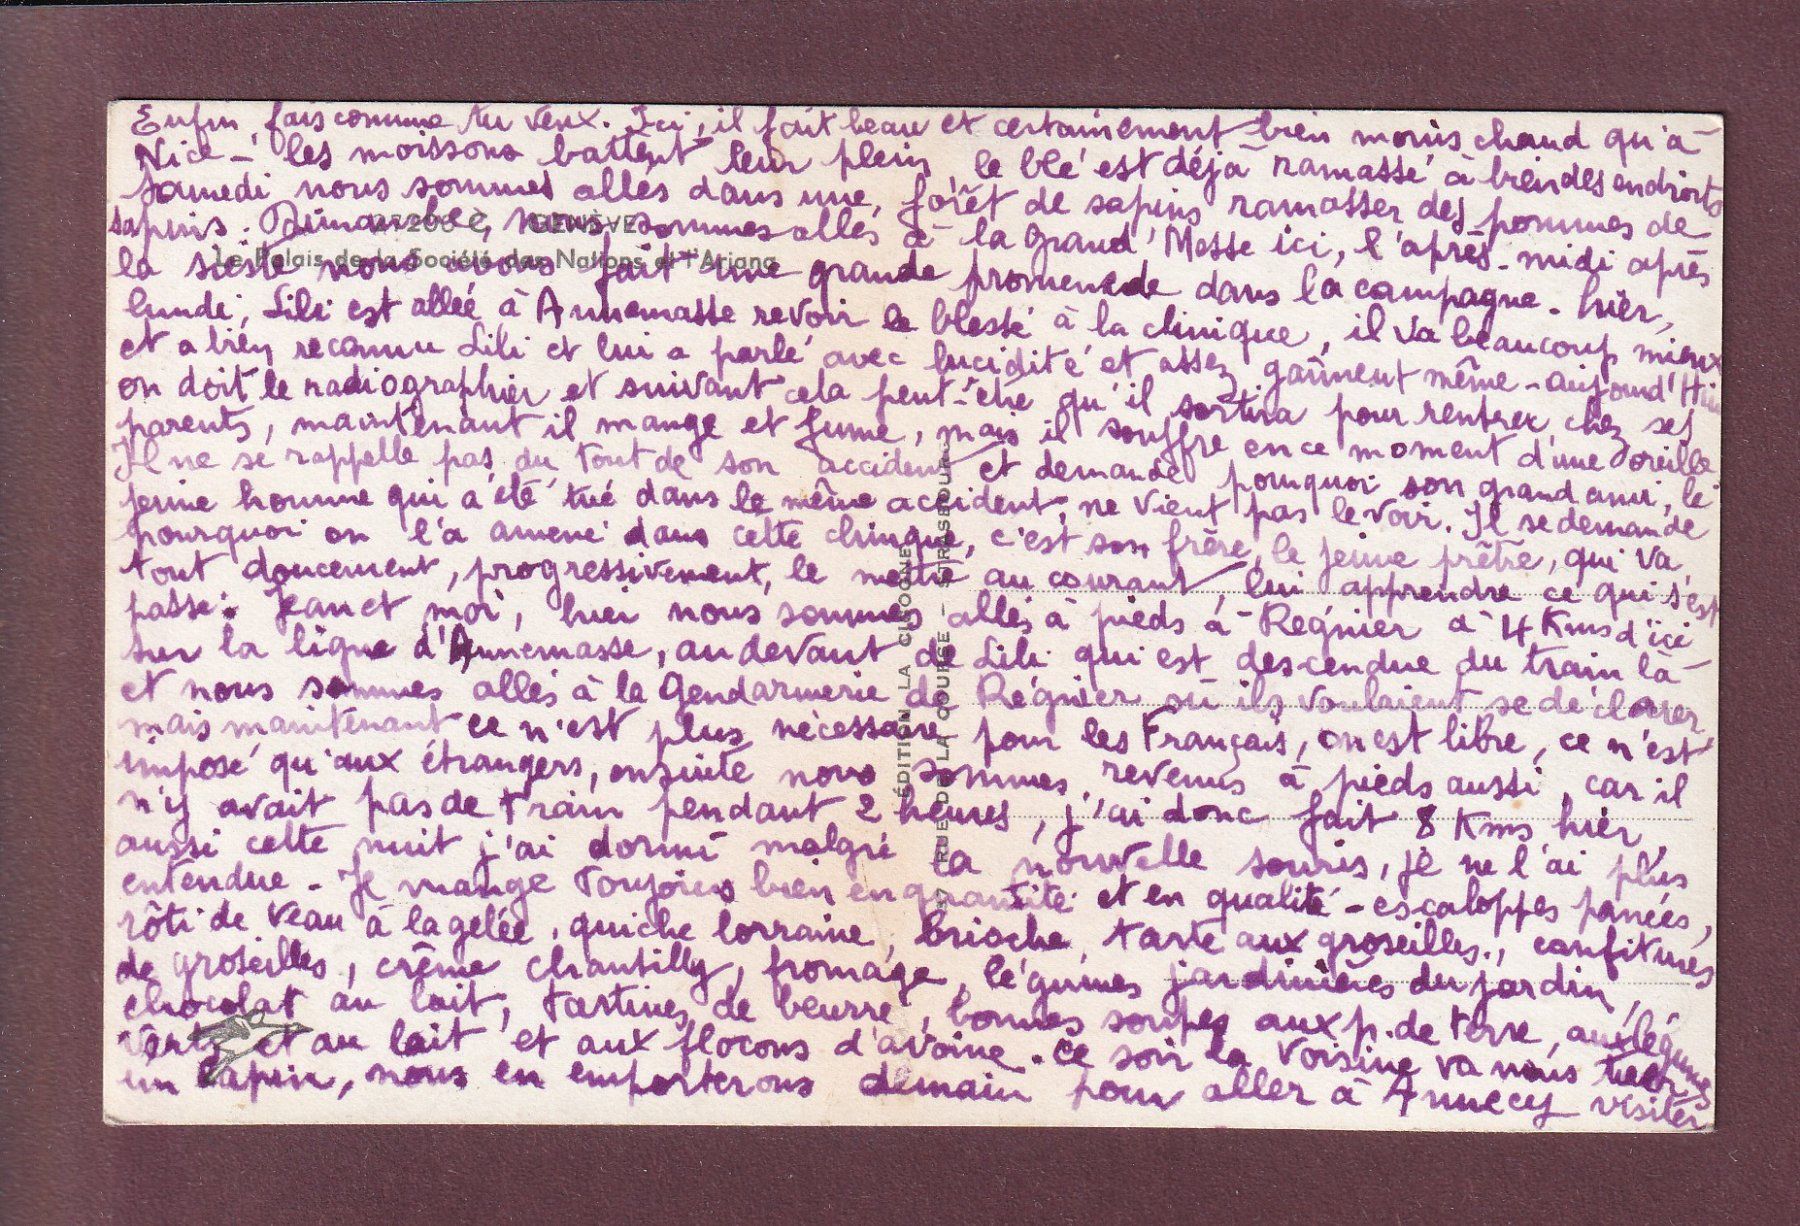 Enfin, fais comme tu veux. Ici, il fait beau et certainement bien moins chaud qu'à
Nice - les moissons battent leur plein, le blé est déjà ramassé à bien des endroits
Samedi nous sommes allés dans une forêt de sapins ramasser des pommes de
sapins. Dimanche, nous sommes allés à la Grand'Messe ici, l'après-midi après
la sieste nous avons fait une grande promenade dans la campagne. hier,
lundi, Lili est allée à Annemasse revoir le blessé à la clinique, il va beaucoup mieux
et a bien reconnu Lili et lui a parlé avec lucidité et assez gaîment même - aujourd'hui
on doit le radiographier et suivant cela peut-être qu'il sortira pour rentrer chez ses
parents, maintenant il mange et fume, mais il souffre en ce moment d'une oreille
Il ne se rappelle pas du tout de son accident et demande pourquoi son grand ami, le
jeune homme qui a été tué dans le même accident, ne vient pas le voir. Il se demande
pourquoi on l'a amené dans cette clinique, c'est son frère, le jeune prêtre, qui va
tout doucement, progressivement, le mettre au courant, lui apprendre ce qui s'est
passé. Jean et moi, hier nous sommes allés à pieds à Régnier à 4 Kms d'ici
sur la ligne d'Annemasse, au devant de Lili qui est descendue du train là
et nous sommes allés à la Gendarmerie de Régnier où ils voulaient se déclarer
mais maintenant ce n'est plus nécessaire pour les Français, on est libre, ce n'est
imposé qu'aux étrangers, ensuite nous sommes revenus à pieds aussi, car il
n'y avait pas de train pendant 2 heures, j'ai donc fait 8 Kms hier,
aussi cette nuit j'ai dormi malgré la nouvelle souris, je ne l'ai plus
entendue - Je mange toujours bien en quantité et en qualité - escaloppes panées,
rôti de veau à la gelée, quiche lorraine, brioche, tarte aux groseilles, confitures
de groseilles, crême chantilly, fromage, légumes jardinières du jardin,
chocolat au lait, tartines de beurre, bonnes soupes aux p. de terre, aux légumes
verts et au lait et aux flocons d'avoine. Ce soir la voisine va nous tuer
un lapin, nous en emporterons demain pour aller à Annecy visiter
206 C GENÈVE
Le Palais de la Société des Nations et l'Ariana
ÉDITION LA CIGOGNE
RUE DE LA COURSE - STRASBOURG